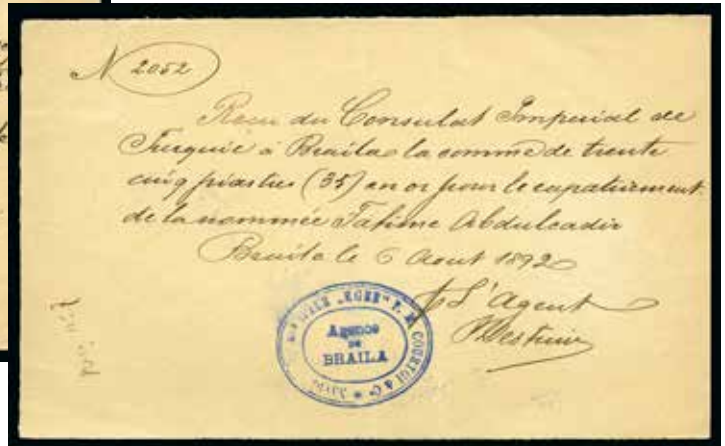 N 2052
Recu du Consulat Imperial de
Turquie à Braila la somme de trente
cinq piastres (35) en or pour le rapatriement
de la nommée Fatime Abdulcadir
Braila le 6 Aout 1892
L'Agent
Agence
DE
BRAILA
COURTGI & Co